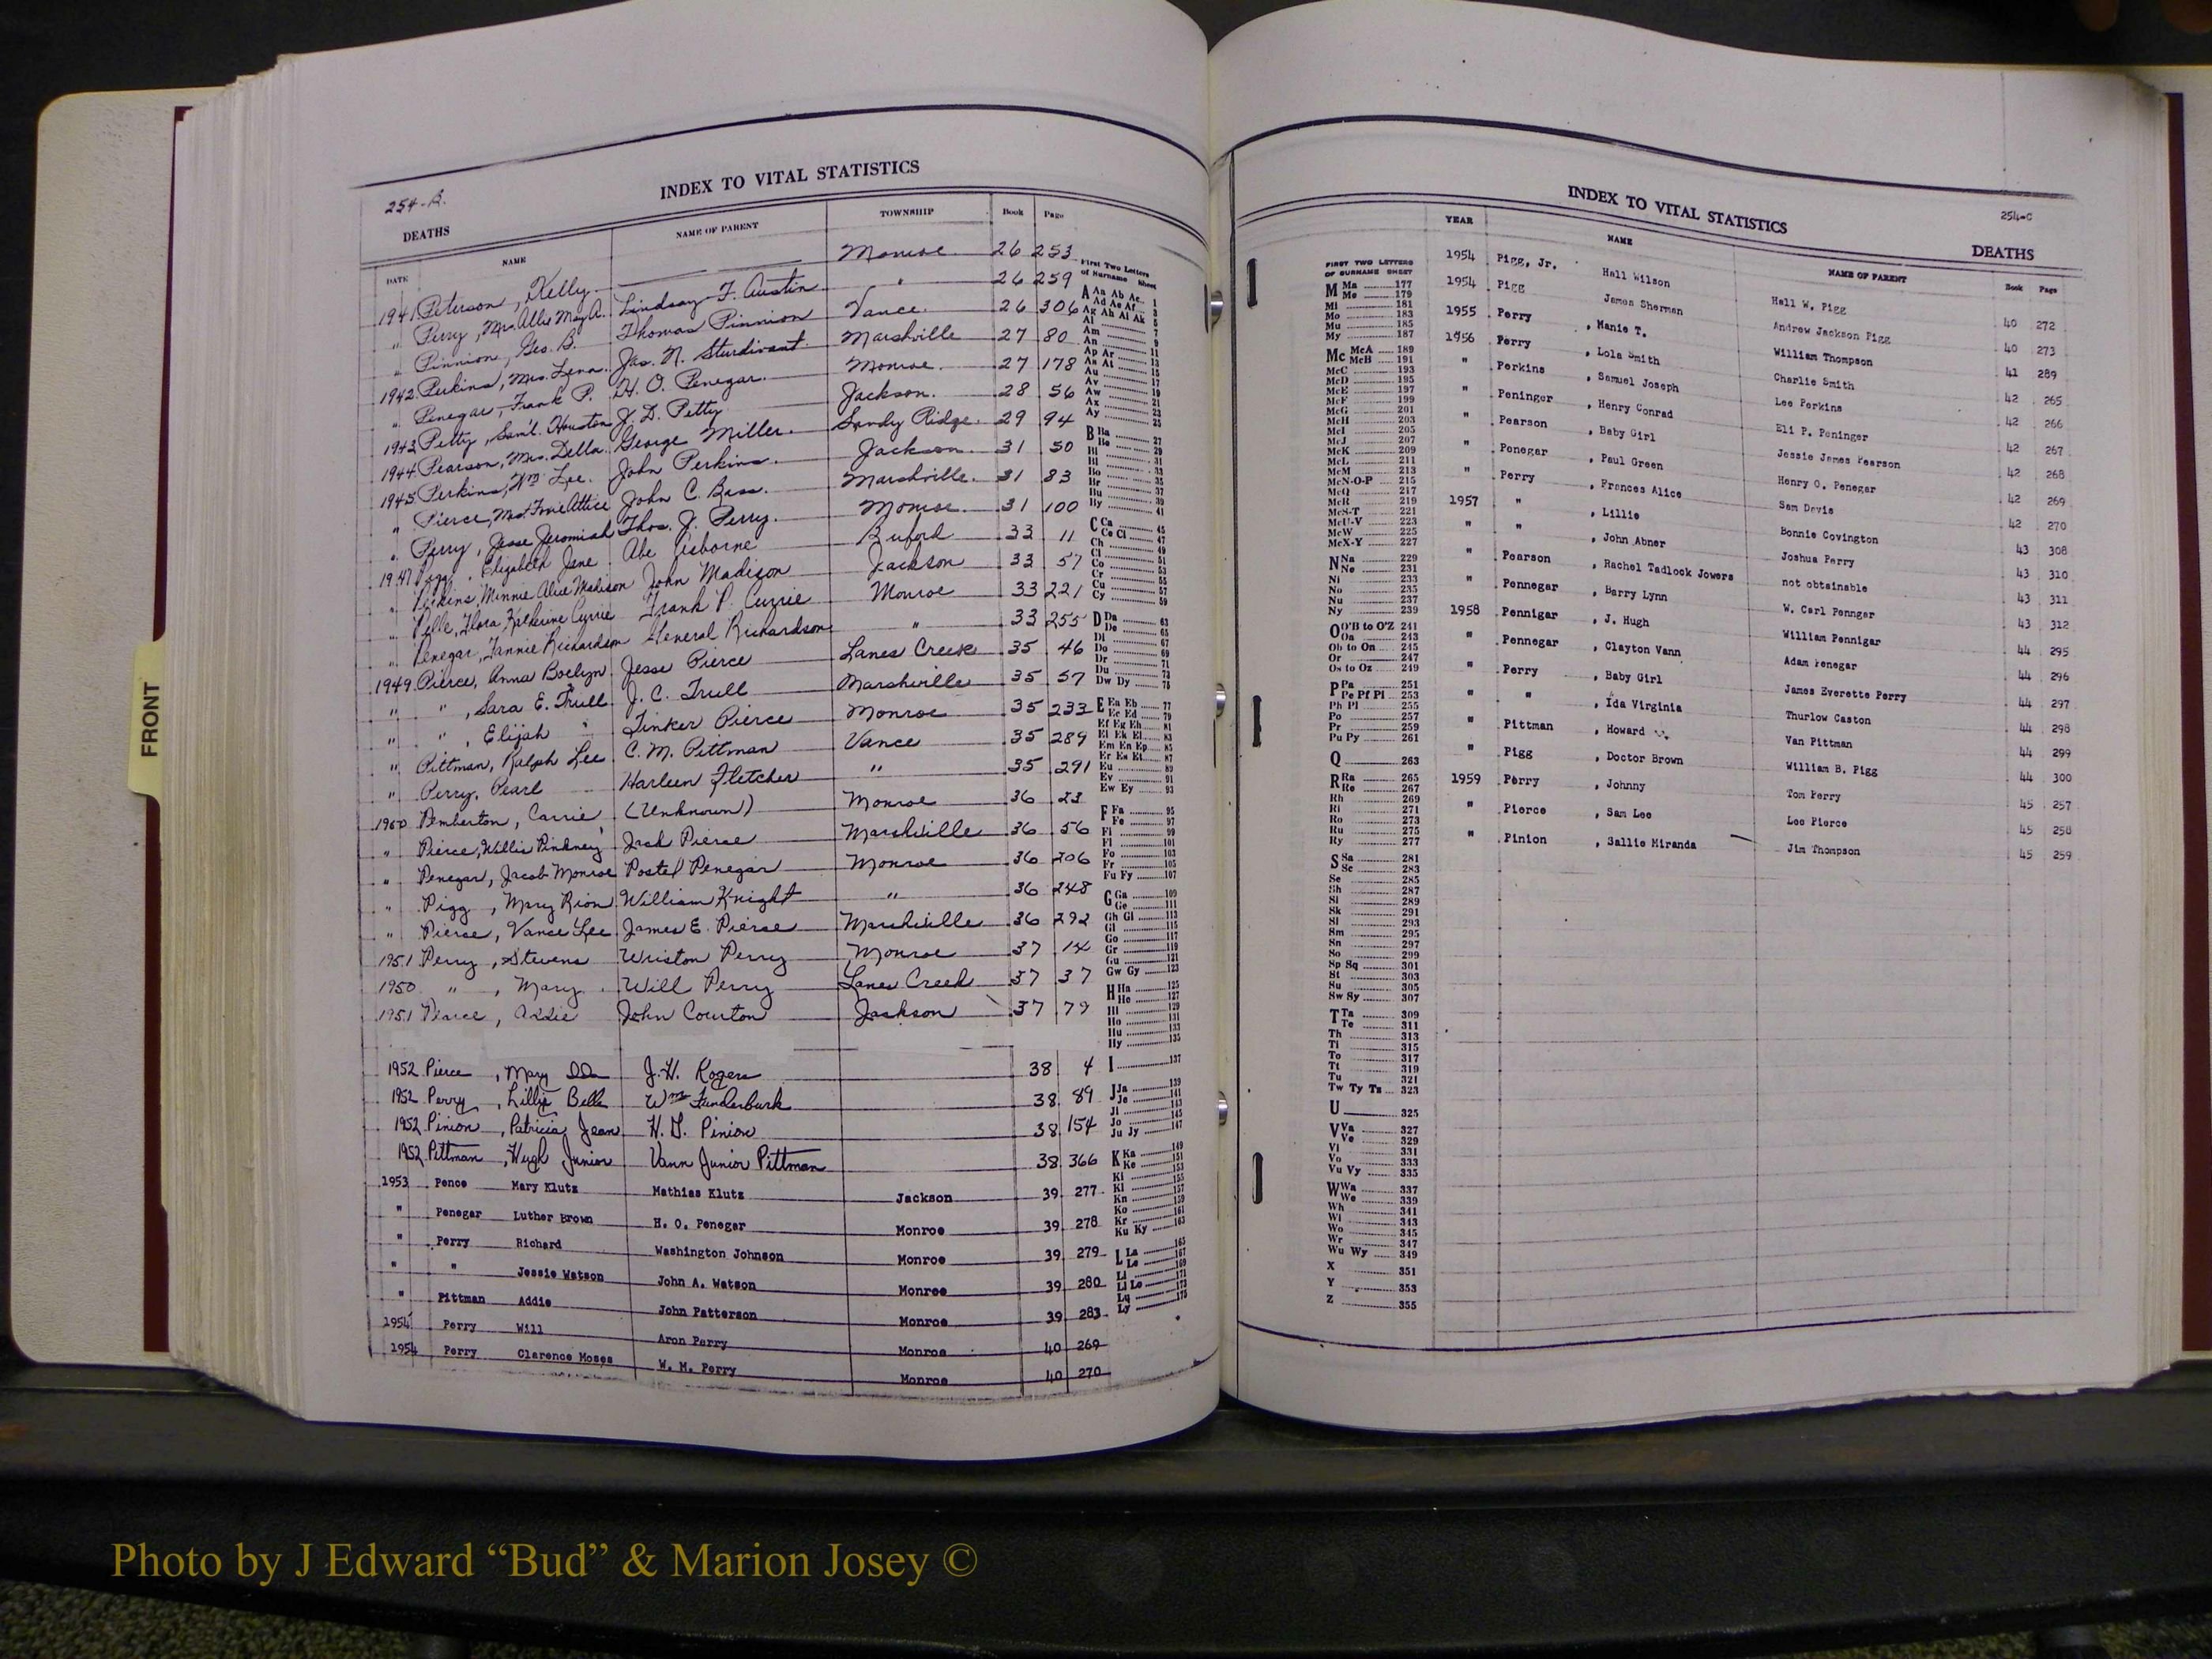 254-B.
INDEX TO VITAL STATISTICS
DEATHS
DATE NAME NAME OF PARENT TOWNSHIP Book Page
1941 Peterson, Kelly Monroe 26 253
" Perry, Mrs. Allie May A. Lindsay F. Austin " 26 259
" Pinnion, Geo. B. Thomas Pinnion Vance 26 306
1942 Perkins, Mrs. Lena Jas. N. Sturdivant Marshville 27 80
" Penegar, Frank P. H. O. Penegar Monroe 27 178
1943 Petty, Sam'l. Houston J. D. Petty Jackson 28 56
1944 Pearson, Mrs. Della George Miller Sandy Ridge 29 94
1945 Perkins, Wm Lee John Perkins Jackson 31 50
" Pierce, Mrs. Attice John C. Bass Marshville 31 83
" Perry, Jesse Jeremiah Thos. J. Perry Monroe 31 100
1947 Pigg, Elizabeth Jane Abe Osborne Buford 33 11
" Perkins, Minnie Alice Madison John Madison Jackson 33 57
" Flora Katherine Currie Frank P. Currie Monroe 33 221
" Penegar, Fannie Richardson General Richardson " 33 255
1949 Pierce, Anna Jesse Pierce Lanes Creek 35 46
" ", Sara E. Trull J. C. Trull Marshville 35 57
" ", Elijah Tinker Pierce Monroe 35 233
" Pittman, Ralph Lee C. M. Pittman Vance 35 289
" Perry, Pearl Harleen Fletcher " 35 291
1950 Pemberton, Carrie (Unknown) Monroe 36 23
" Pierce, Willis Pinkney Jack Pierce Marshville 36 56
" Penegar, Jacob Monroe Postel Penegar Monroe 36 206
" Pigg, Mary Rion William Knight " 36 248
" Pierce, Vance Lee James E. Pierce Marshville 36 292
1951 Perry, Stevens Wriston Perry Monroe 37 14
1950 ", Mary Will Perry Lanes Creek 37 37
1951 Pearce, Addie John Courton Jackson 37 79
1952 Pierce, Mary J. H. Rogers 38 4
1952 Perry, Lillie Belle Wm Funderburk 38 89
1952 Pinion, Patricia Jean H. G. Pinion 38 154
1952 Pittman, Hugh Junior Vann Junior Pittman 38 366
1953 Pence Mary Klutz Mathias Klutz Jackson 39 277
" Penegar Luther Brown H. O. Penegar Monroe 39 278
" Perry Richard Washington Johnson Monroe 39 279
" " Jessie Watson John A. Watson Monroe 39 280
" Pittman Addie John Patterson Monroe 39 283
1954 Perry Will Aron Perry Monroe 40 269
1954 Perry Clarence Moses W. M. Perry Monroe 40 270
First Two Letters
of Surname Sheet
A Aa Ab Ac 1
Ad Ae Af 3
Ag Ah Ai Ak 5
Al 7
Am 9
An 11
Ap Ar 13
As At 15
Au 17
Av 19
Aw 21
Ax 23
Ay 25
B Ba 27
Be 29
C Ca 45
Ce Ci 47
Ch 49
Cl 51
Co 53
Cr 55
Cu 57
Cy 59
D Da 63
De 65
Di 67
Do 69
Dr 71
Du 73
Dw Dy 75
E Ea Eb 77
Ec Ed 79
Ef Eg Eh 81
Ei Ek El 83
Em En Ep 85
Er Es Et 87
Eu 89
Ev 91
Ew Ey 93
F Fa 95
Fe 97
Fi 99
Fl 101
Fo 103
Fr 105
Fu Fy 107
G Ga 109
Ge 111
Gh Gi 113
Gl 115
Go 117
Gr 119
Gu 121
Gw Gy 123
H Ha 125
He 127
Hi 129
Ho 131
Hu 133
Hy 135
I 137
J Ja 139
Je 141
Ji 143
Jo 145
Ju Jy 147
K Ka 149
Ke 151
Ki 153
Kl 155
Kn 157
Ko 159
Kr 161
Ku Ky 163
L La 165
Le 167
Li 169
Ll Lo 171
Lu 173
Ly 175
INDEX TO VITAL STATISTICS
254-C
DEATHS
YEAR NAME NAME OF PARENT Book Page
1954 Pigg, Jr. Hall Wilson Hall W. Pigg 40 272
1954 Pigg James Sherman Andrew Jackson Pigg 40 273
1955 Perry, Manie T. William Thompson 41 289
1956 Perry, Lola Smith Charlie Smith 42 265
" Perkins, Samuel Joseph Lee Perkins 42 266
" Peninger, Henry Conrad Eli P. Peninger 42 267
" Pearson, Baby Girl Jessie James Pearson 42 268
" Penegar, Paul Green Henry O. Penegar 42 269
" Perry, Frances Alice Sam Davis 42 270
1957 ", Lillie Bonnie Covington 43 308
" ", John Abner Joshua Perry 43 310
" Pearson, Rachel Tadlock Jowers not obtainable 43 311
" Pennegar, Barry Lynn W. Carl Penngar 43 312
1958 Pennigar, J. Hugh William Pennigar 44 295
" Pennegar, Clayton Vann Adam Penegar 44 296
" Perry, Baby Girl James Everette Perry 44 297
" ", Ida Virginia Thurlow Caston 44 298
" Pittman, Howard Van Pittman 44 299
" Pigg, Doctor Brown William B. Pigg 44 300
1959 Perry, Johnny Tom Perry 45 257
" Pierce, Sam Lee Lee Pierce 45 258
" Pinion, Sallie Miranda Jim Thompson 45 259
FIRST TWO LETTERS
OF SURNAME SHEET
M Ma 177
Me 179
Mi 181
Mo 183
Mu 185
My 187
Mc McA 189
McB 191
McC 193
McD 195
McE 197
McF 199
McG 201
McH 203
McI 205
McJ 207
McK 209
McL 211
McM 213
McN-O-P 215
McQ 217
McR 219
McS-T 221
McU-V 223
McW 225
McX-Y 227
N Na 229
Ne 231
Ni 233
No 235
Nu 237
Ny 239
O O'B to O'Z 241
Oa 243
Ob to On 245
Or 247
Os to Oz 249
P Pa 251
Pe Pf Pi 253
Ph Pl 255
Po 257
Pr 259
Pu Py 261
Q 263
R Ra 265
Re 267
Rh 269
Ri 271
Ro 273
Ru 275
Ry 277
S Sa 281
Sc 283
Se 285
Sh 287
Si 289
Sk 291
Sl 293
Sm 295
Sn 297
So 299
Sp Sq 301
St 303
Su 305
Sw Sy 307
T Ta 309
Te 311
Th 313
Ti 315
To 317
Tt 319
Tu 321
Tw Ty Tz 323
U 325
V Va 327
Ve 329
Vi 331
Vo 333
Vu Vy 335
W Wa 337
We 339
Wh 341
Wi 343
Wo 345
Wr 347
Wu Wy 349
X 351
Y 353
Z 355
FRONT
Photo by J Edward “Bud” & Marion Josey ©